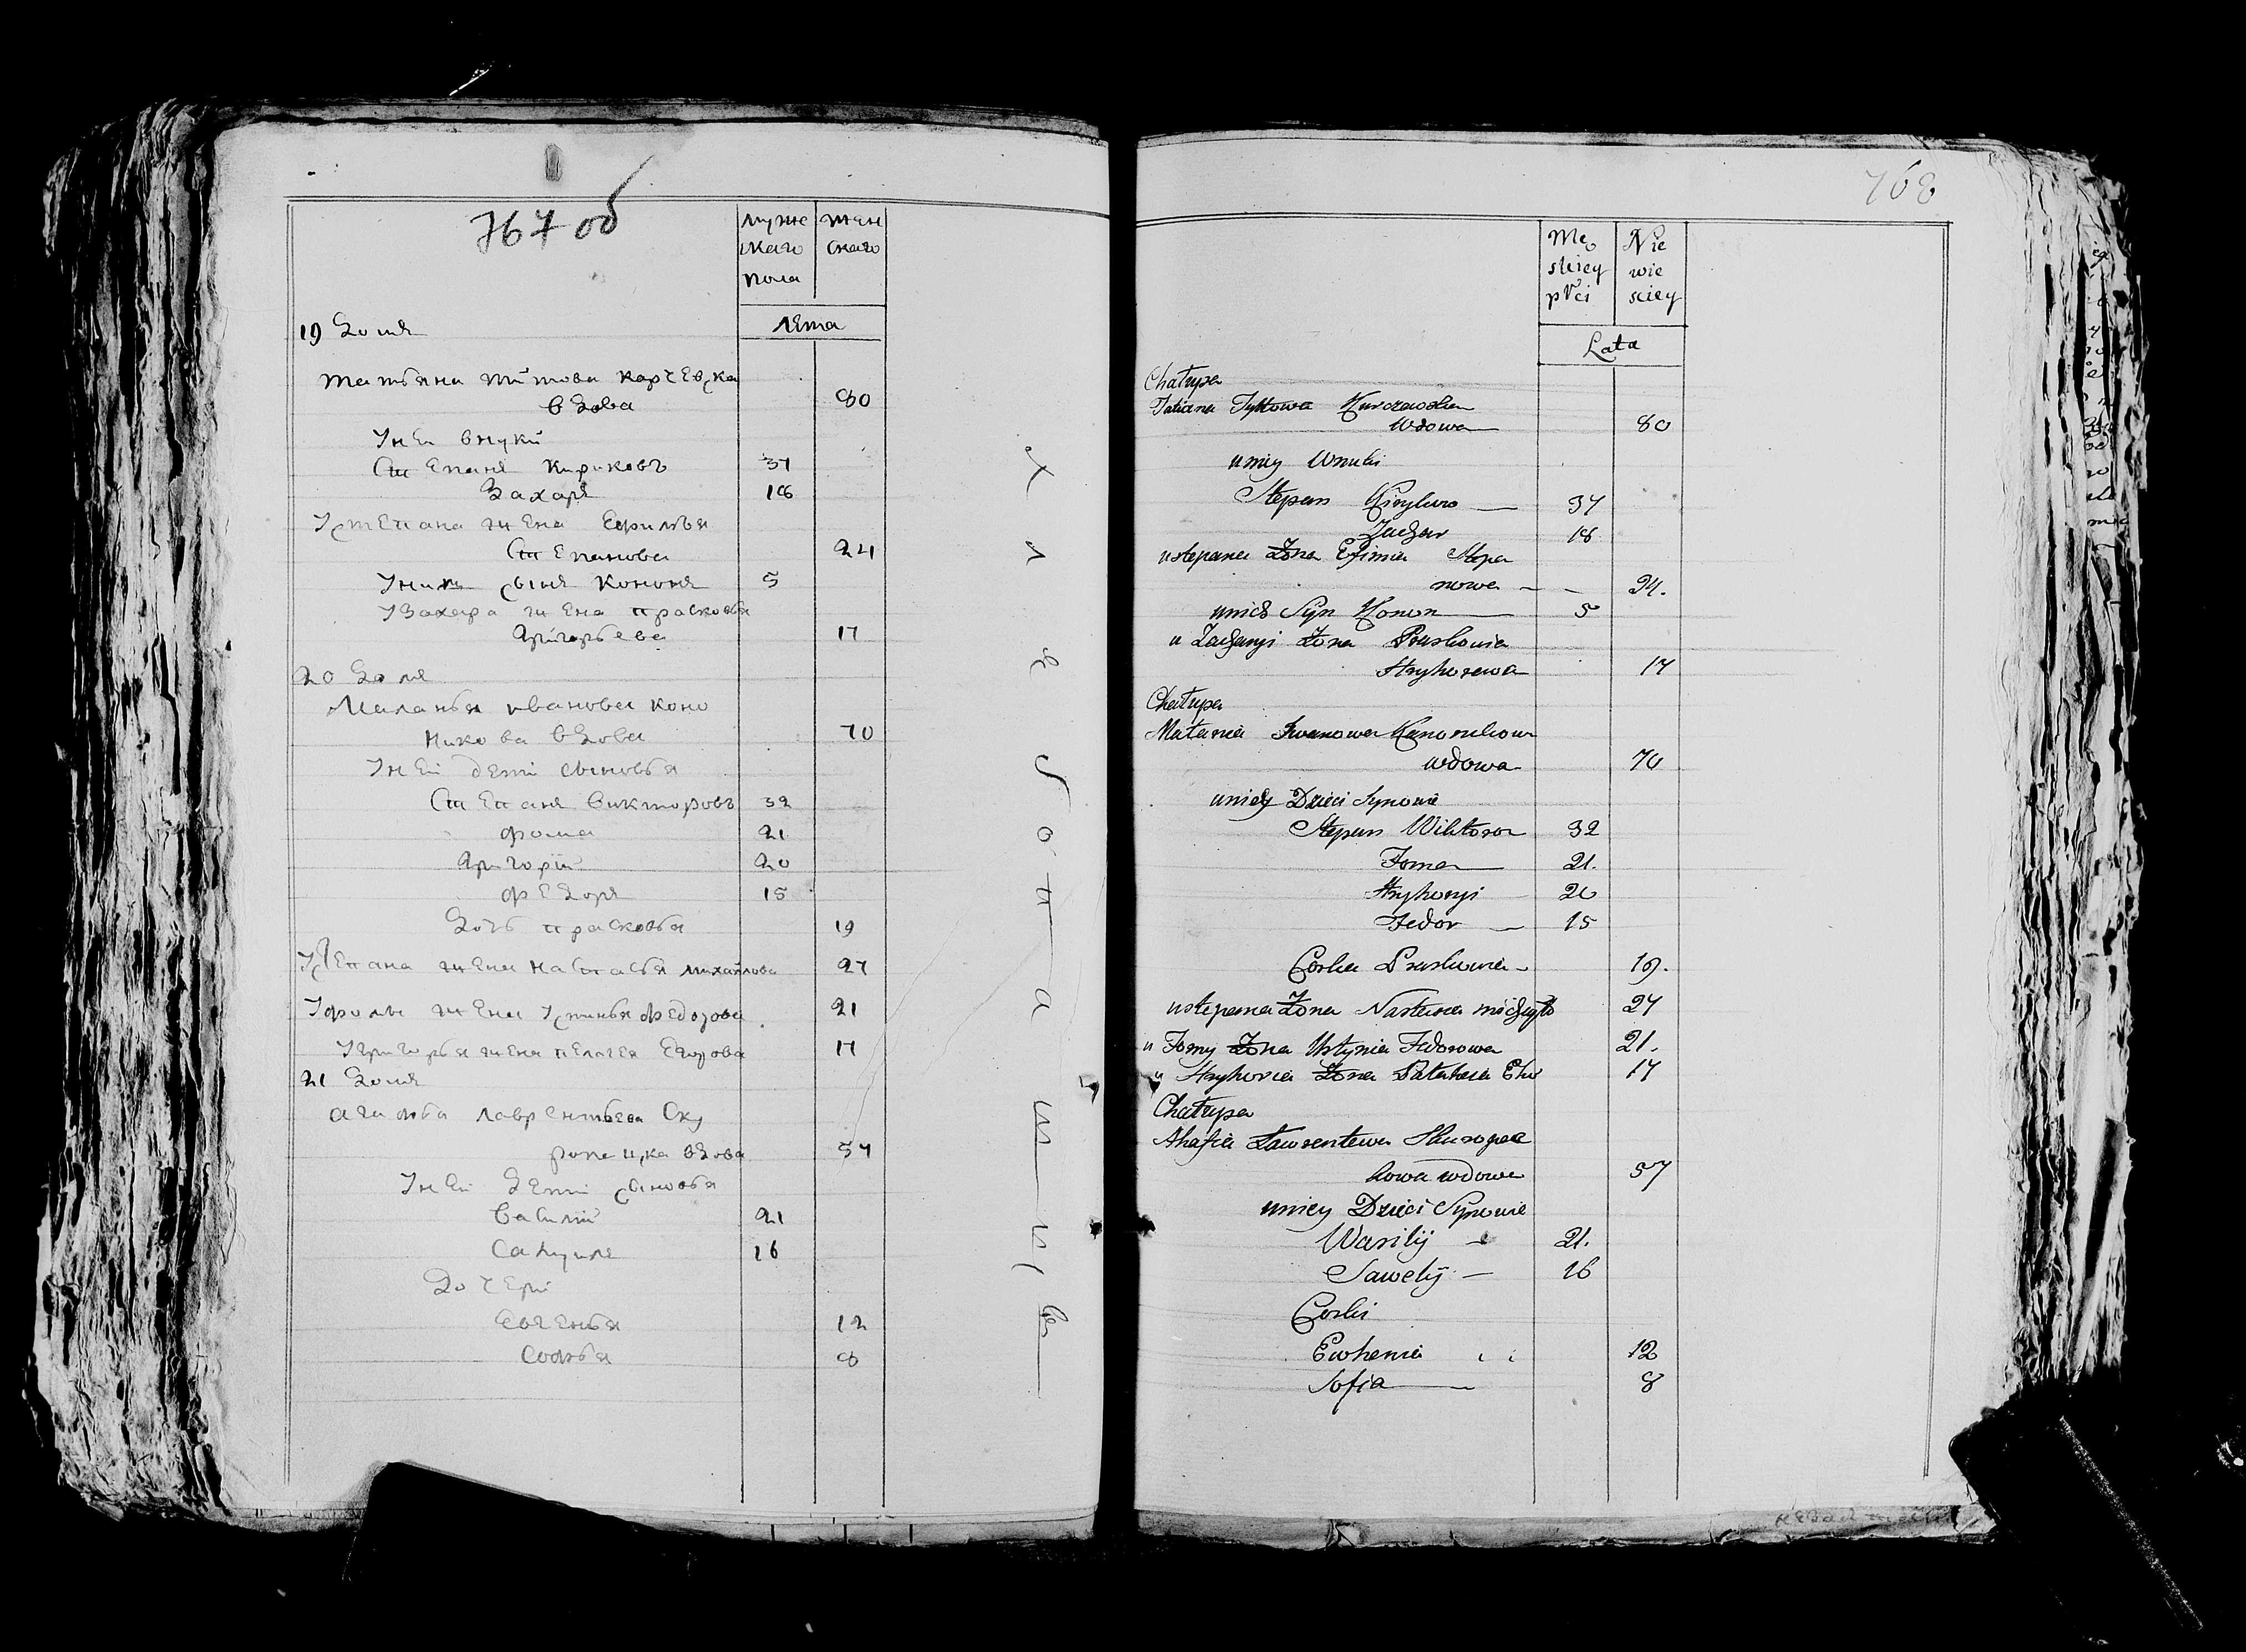 767 об
муже
скаго
пола
жен
скаго
Лета
19 Домъ
татьяна титова карчевска
вдова 80
Унеи внуки
Степанъ Кириковъ 37
Захаръ 18
Устепана жена Ефимья
Степанова 24
Унихъ сынъ Кононъ 5
УЗахара жена прасковья
Григорьева 17
20 Домъ
Маланья иванова коно
никова вдова 70
Унеи дети сыновья
Степанъ викторовъ 32
фома 21
Григорiй 20
федоръ 15
Дочь прасковья 19
Устепана жена настасья михайлова 27
Уфомы жена устинья федорова 21
Угригорья жена пелагея Егорова 17
21 Домъ
агафья лаврентьева Ску
ропецка вдова 57
Унеи дети сыновья
василiй 21
Самуилъ 16
Дочери
Евгенья 12
Софья 8
768
Mę
skiey
płci
Nie
wie
sciey
Lata
Chatupa
Tatiana Tyttowa Kurczewska
Wdowa 80
uniey Wnuki
Stepan Kirykow 37
Zachar 18
ustepana Zona Efimia Stepa
nowa 24.
unich Syn Konon 5
u Zacharyi Zona Praskowia
Hryhorewa 17
Chatupa
Matania Iwanowa Kanonikow
wdowa 70
uniey Dzieci Synowie
Stepan Wiktorow 32
Foma 21.
Hryhoryi 20
Fedor 15
Corka Praskowia 19.
ustepana Zona Nastasia michayło 27
u Fomy Zona Ustynia Fedorowa 21.
u Hryhoria Zona Pataheia Eho 17
Chatupa
Ahafia Lawrentewa Skuropac
kowa wdowa 57
uniey Dzieci Synowie
Wasilij 21.
Sawelij 16
Corki
Ewhenia 12
Sofia 8